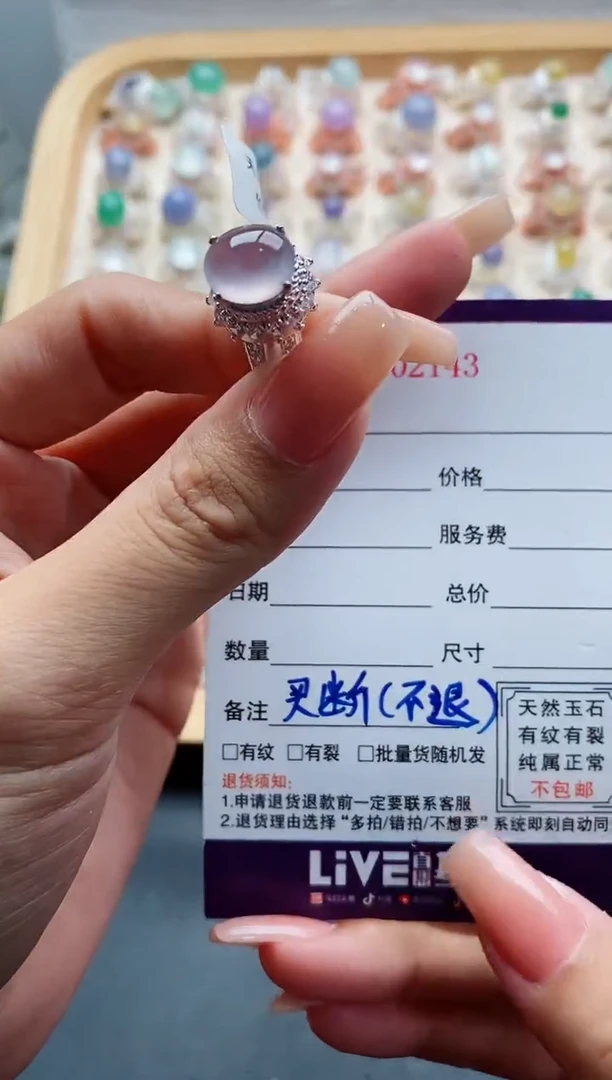 02143
价格
服务费
日期 总价
数量 尺寸
备注 买断(不退)
天然玉石
有纹有裂
纯属正常
不包邮
□有纹 □有裂 □批量货随机发
退货须知:
1.申请退货退款前一定要联系客服
2.退货理由选择“多拍/错拍/不想要”系统即刻自动同
LiVE